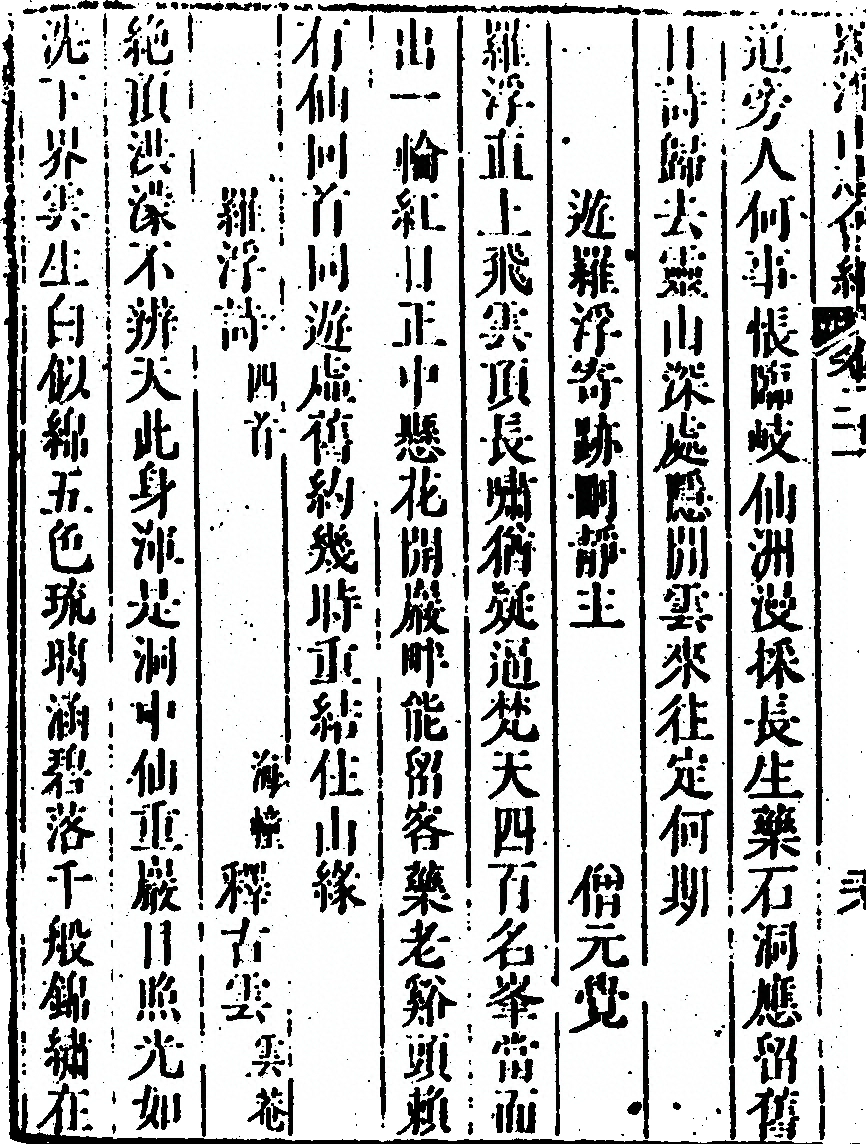 羅浮山志會編 卷二 弐
道旁人何事悵臨岐仙洲漫採長生藥石洞應留舊
日詩歸去靈山深處隱閒雲來往定何期
遊羅浮寄跡刪靜主 僧元覺
羅浮直上飛雲頂長嘯猶疑逼梵天四百名峯當面
出一輪紅日正中懸花開巖畔能留客藥老谿頭賴
有仙回首同遊虛舊約幾時重結住山緣
羅浮詩四首 海幢釋古雲雲菴
絶頂洪濛不辨天此身渾是洞中仙重巖日照光如
洗下界雲生白似綿五色琉璃涵碧落千般錦繡在